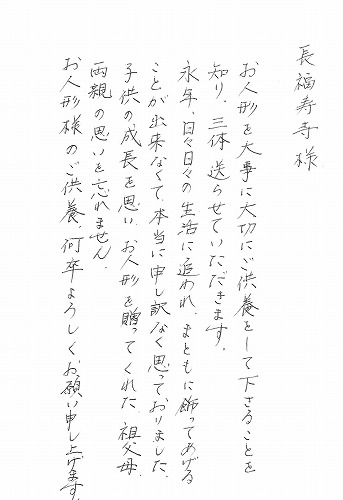 長福寿寺様
お人形を大事に大切にご供養をして下さることを
知り、三体送らせていただきます。
永年、日々日々の生活に追われ、まともに飾ってあげる
ことが出来なくて、本当に申し訳なく思っておりました。
子供の成長を思い、お人形を贈ってくれた、祖父母、
両親の思いを忘れません。
お人形様のご供養、何卒よろしくお願い申し上げます。